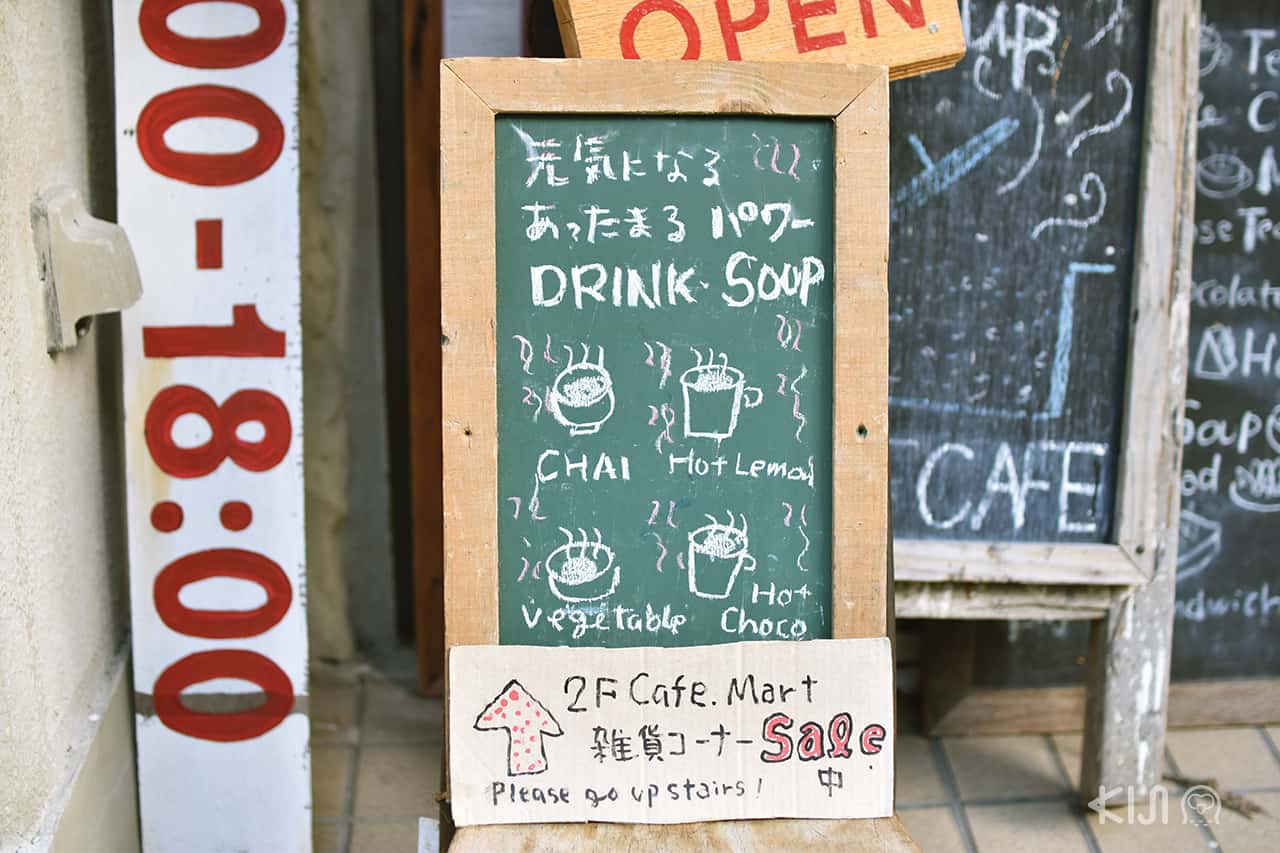 OPEN
00-18:00
元気になる
あったまる パワー
DRINK・SOUP
CHAI
Hot Lemon
Vegetable
Hot
Choco
2F Cafe. Mart
雑貨コーナー Sale
中
Please go upstairs!
UP
CAFE
Te
M
Tea
Soup
KIJI